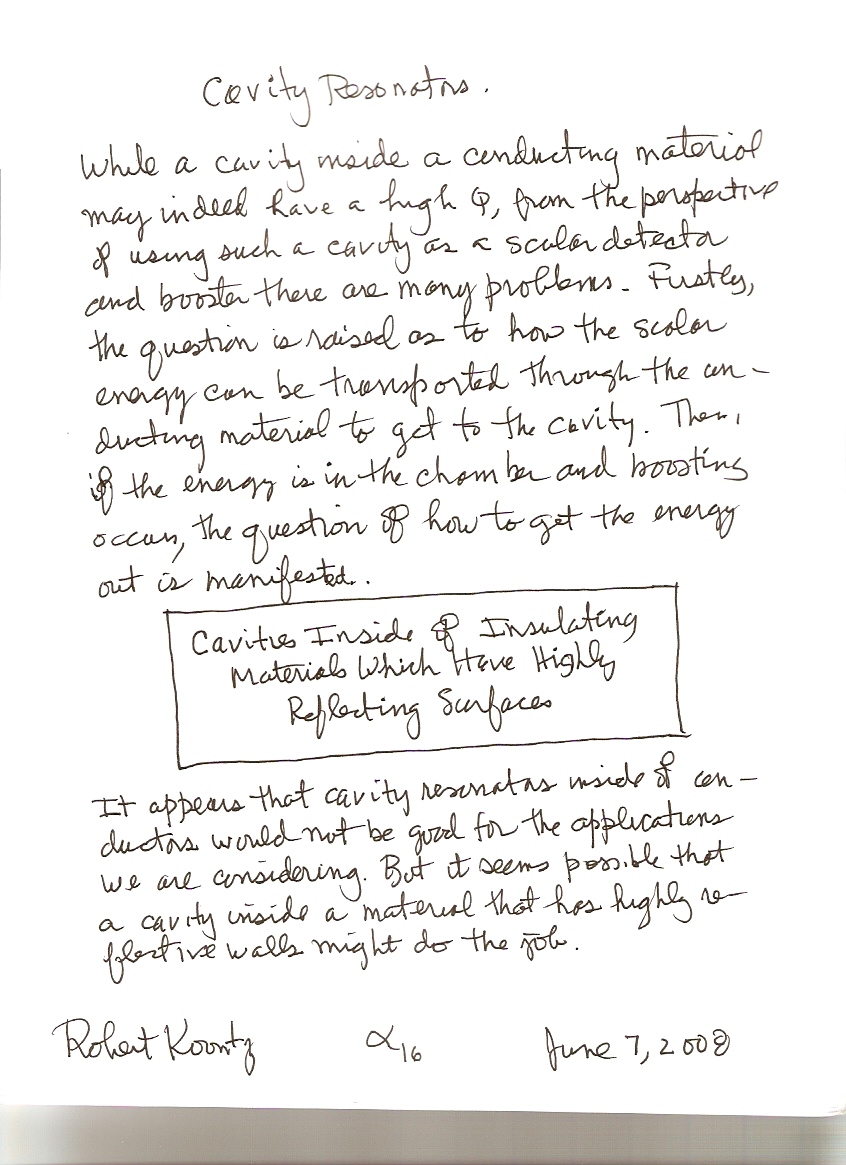 Cavity Resonators.
While a cavity inside a conducting material
may indeed have a high Q, from the perspective
of using such a cavity as a scalar detector
and booster there are many problems. Firstly,
the question is raised as to how the scalar
energy can be transported through the con-
ducting material to get to the cavity. Then,
if the energy is in the chamber and boosting
occurs, the question of how to get the energy
out is manifested.
Cavities Inside of Insulating
Materials Which Have Highly
Reflecting Surfaces
It appears that cavity resonators inside of con-
ductors would not be good for the applications
we are considering. But it seems possible that
a cavity inside a material that has highly re-
flective walls might do the job.
Robert Koontz α16 June 7, 2008